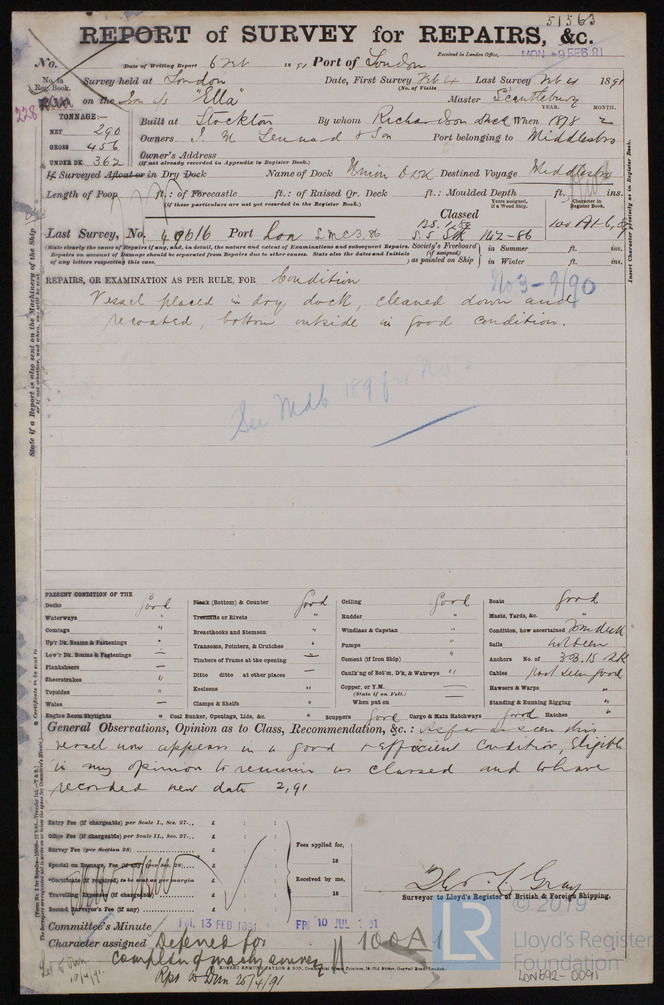 51563
REPORT of SURVEY for REPAIRS, &c.
Received in London Office, MON 9 FEB 91
No. Date of Writing Report 6 Feb 18 91 Port of London
No. in Reg. Book. Survey held at London Date, First Survey Feb 4 Last Survey Feb 4 1891
(No. of Visits
228 on the Iron s/s "Ella" Master
TONNAGE:— Built at Stockton By whom Richardson Duck When 1878 2 YEAR. MONTH.
NET 290
GROSS 456 Owners J. W. Lennard & Son Port belonging to Middlesbro
UNDER DK. 362 Owner's Address
(if not already recorded in Appendix to Register Book.)
If Surveyed Afloat or in Dry Dock Name of Dock Union Dock Destined Voyage Middlesbro
Length of Poop ft.: of Forecastle ft.: of Raised Qr. Deck ft.: Moulded Depth ft. ins.
(if these particulars are not yet recorded in the Register Book.)
Years assigned, if a Wood Ship. Character in Register Book.
Classed
Last Survey, No. Port Lon S.M.C 3.86
100 A1
(State clearly the cause of Repairs if any, and, in detail, the nature and extent of Examinations and subsequent Repairs.
Repairs on account of Damage should be separated from Repairs due to other causes. State also the dates and Initials
of any letters respecting this case.
Society's Freeboard (if assigned) as painted on Ship in Summer ft. ins.
in Winter ft. ins.
REPAIRS, OR EXAMINATION AS PER RULE, FOR Condition
No 3 - 9/90
Vessel placed in dry dock, cleaned down and
recoated, bottom outside in good condition.
See Mdb 189 for No
PRESENT CONDITION OF THE
Decks good Plank (Bottom) & Counter good Ceiling good Boats good
Waterways " Treenails or Rivets " Rudder " Masts, Yards, &c. "
Comings " Breasthooks and Stemson " Windlass & Capstan " Condition, how ascertained from deck
Up'r Dk. Beams & Fastenings " Transoms, Pointers, & Crutches " Pumps " Sails
Low'r Dk. Beams & Fastenings — Timbers of Frame at the opening — Cement (if Iron Ship) " Anchors No. of 3 B. 1 S 2 K
Plankshears — Ditto ditto at other places — Caulk'ng of Bot'm, D'k, & Watrwys " Cables Part seen good
Sheerstrakes " Keelsons " Copper, or Y.M. Hawsers & Warps "
(State if on Felt.)
Topsides " Clamps & Shelfs " When put on Standing & Running Rigging "
Wales —
Engine Room Skylights " Coal Bunker, Openings, Lids, &c. " Scuppers good Cargo & Main Hatchways good Hatches "
General Observations, Opinion as to Class, Recommendation, &c.: As far as seen this
vessel now appears in a good & efficient condition, Eligible
in my opinion to remain as classed and to have
recorded new date 2,91
Entry Fee (if chargeable) per Scale I., Sec. 27... £ : :
Office Fee (if chargeable) per Scale II., Sec. 27... £ : :
Survey Fee (per Section 28) £ : :
Special or Damage, Fee (if any) (per Sec. 28) £ : :
Certificate (if required) to be sent as per margin £ : :
Travelling Expenses (if chargeable) £ : :
Second Surveyor's Fee (if any) £ : :
Fees applied for, 18
Received by me, 18
Thos. L. Gray
Surveyor to Lloyd's Register of British & Foreign Shipping.
Committee's Minute FRI. 13 FEB 1891 FRI 10 JUL 91
Character assigned Deferred for 100A1
completion of mach'y survey
Rpt to Dun 25/4/91
© 2019
LR
Lloyd's Register
Foundation
LON692-0091
State if a Report is also sent on the Machinery of the Ship
Insert Character precisely as in Register Book.